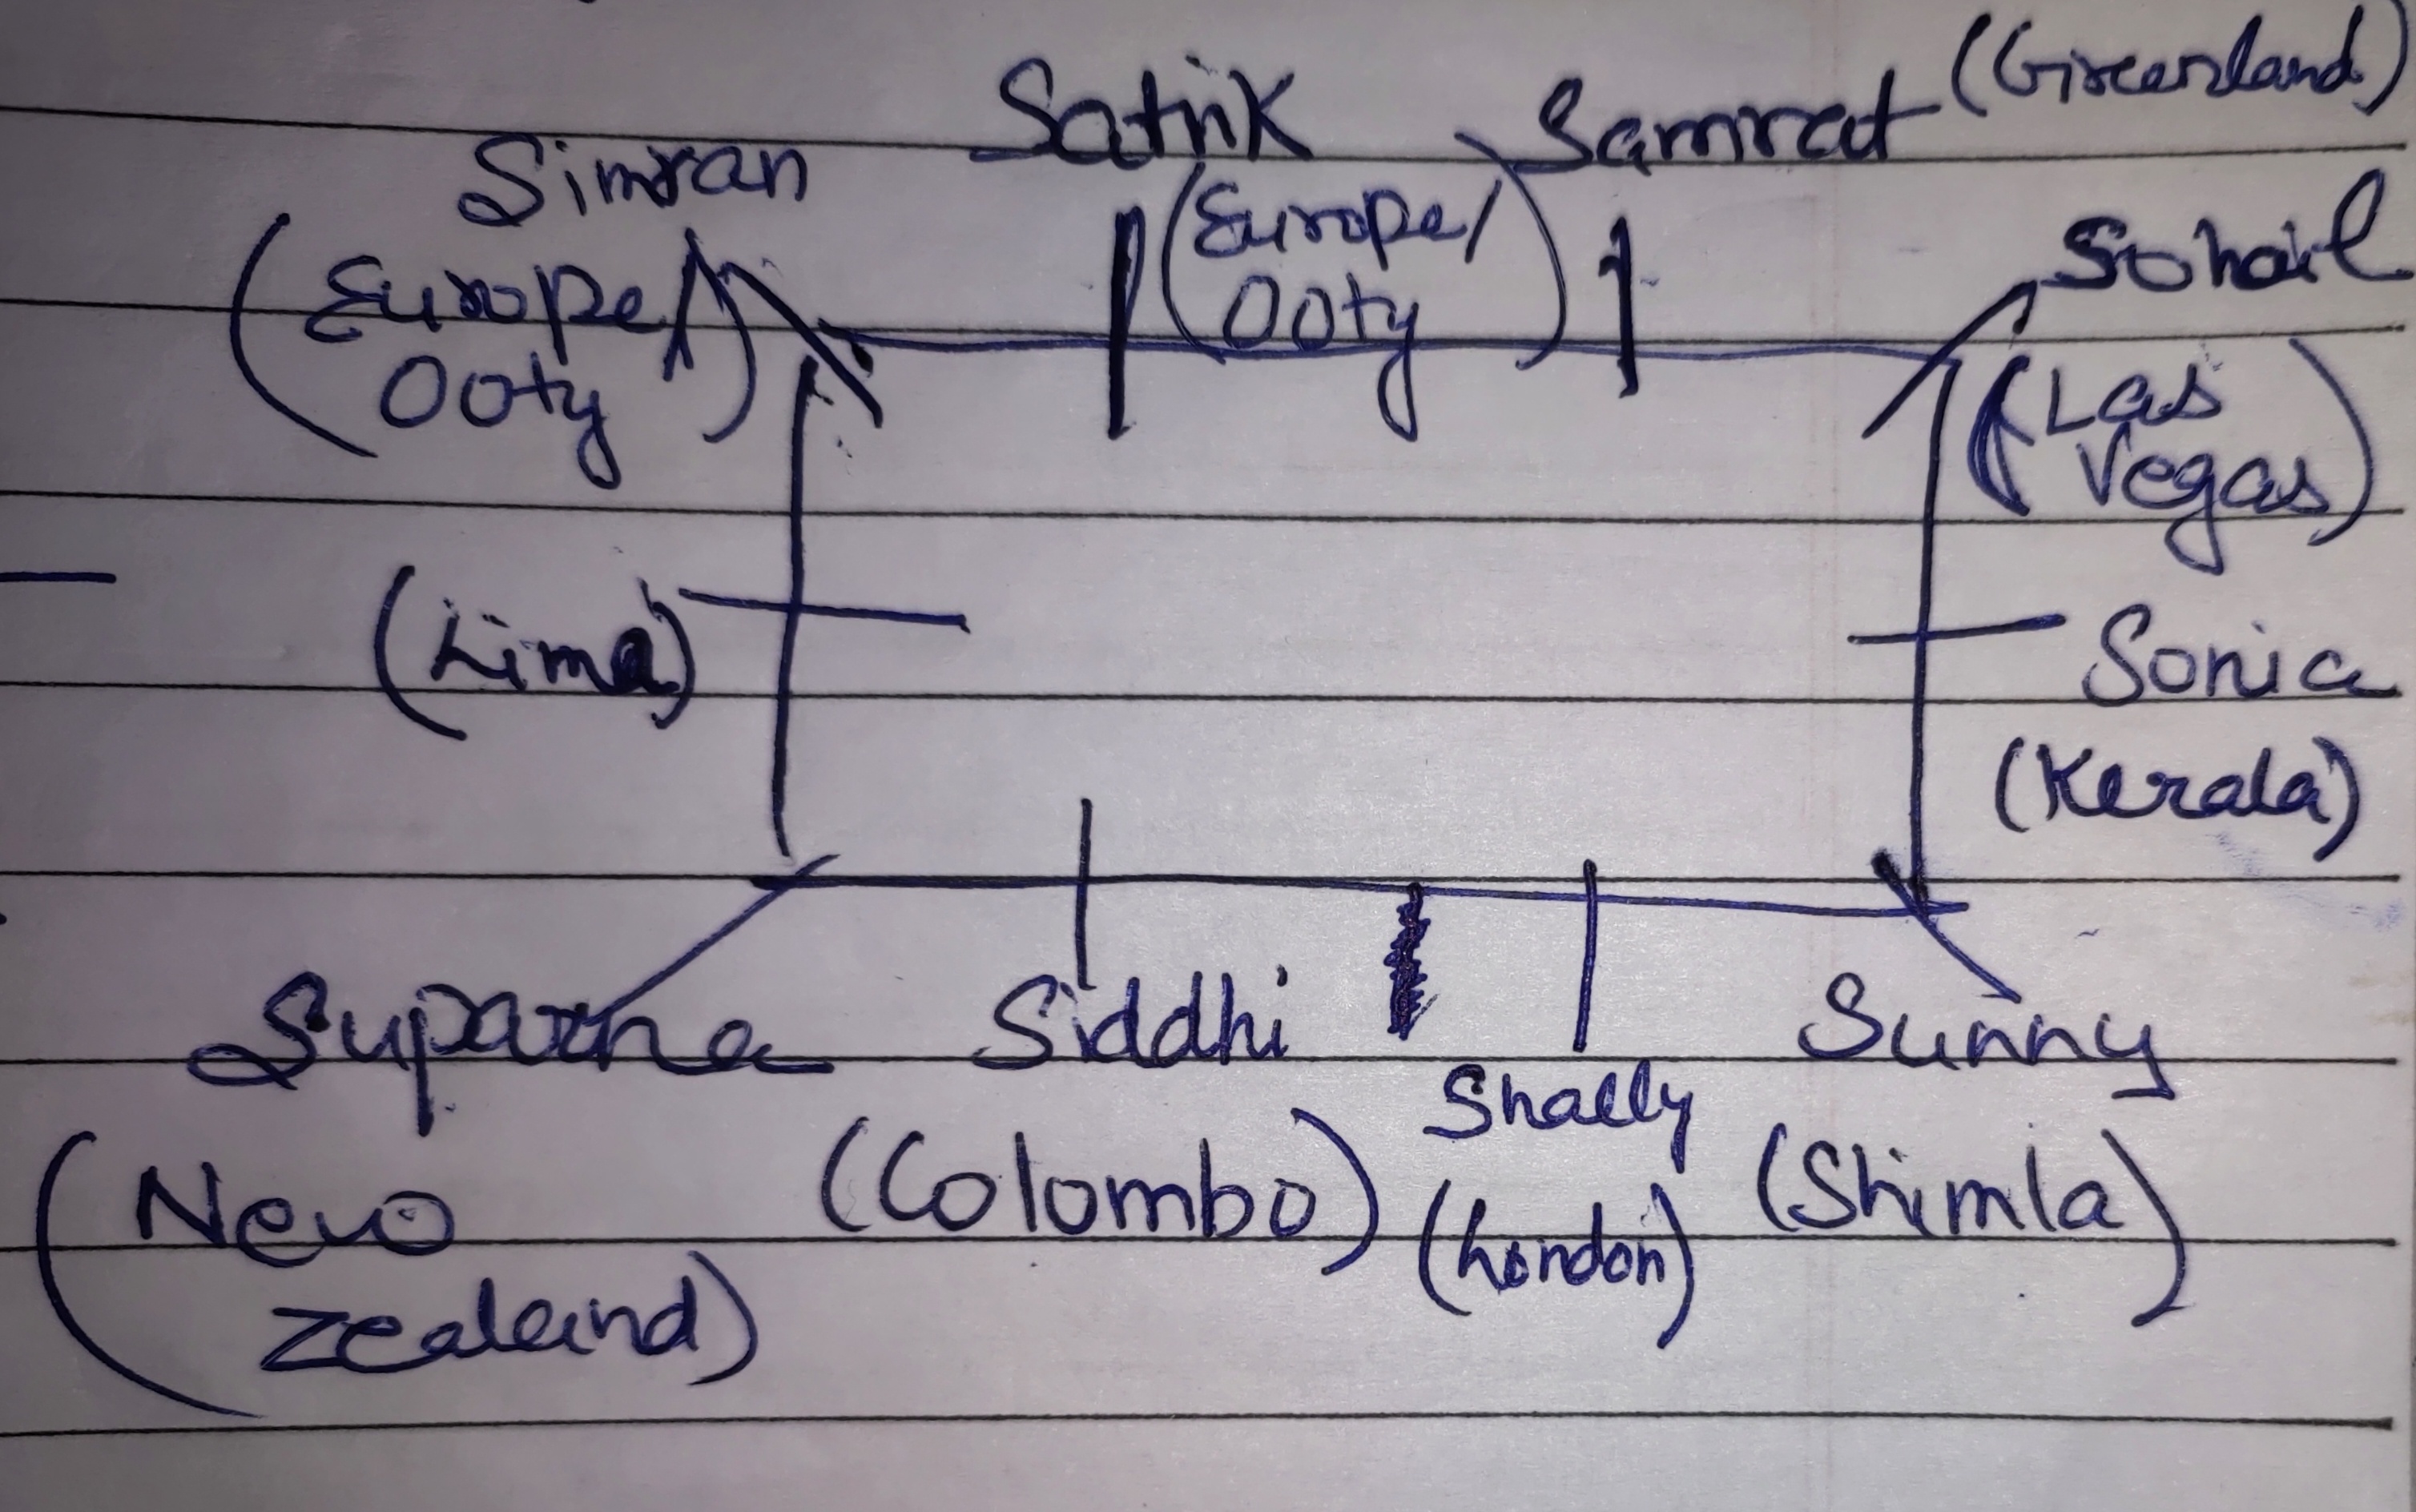 Simran
Satrik
Samrat (Greenland)
(Europe/
Ooty)
(Europe/
Ooty)
Sohail
(Las
Vegas)
(Lima)
Sonia
(Kerala)
Suparna
Siddhi
Shally
Sunny
(New
Zealand)
(Colombo)
(London)
(Shimla)